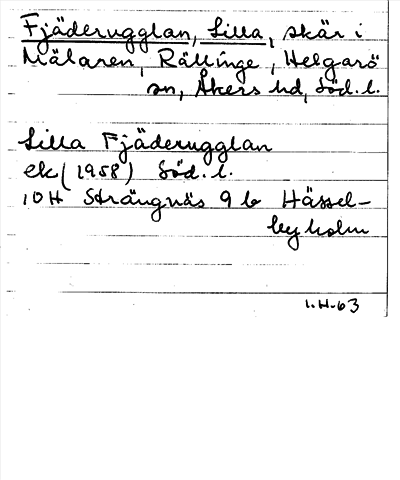 Fjäderugglan, Lilla, skär i
Mälaren, Rällinge, Helgarö
sn, Åkers hd, Söd. l.
Lilla Fjäderugglan
ek (1958) Söd. l.
10 H Strängnäs 9 b Hässel-
byholm
1.H.63